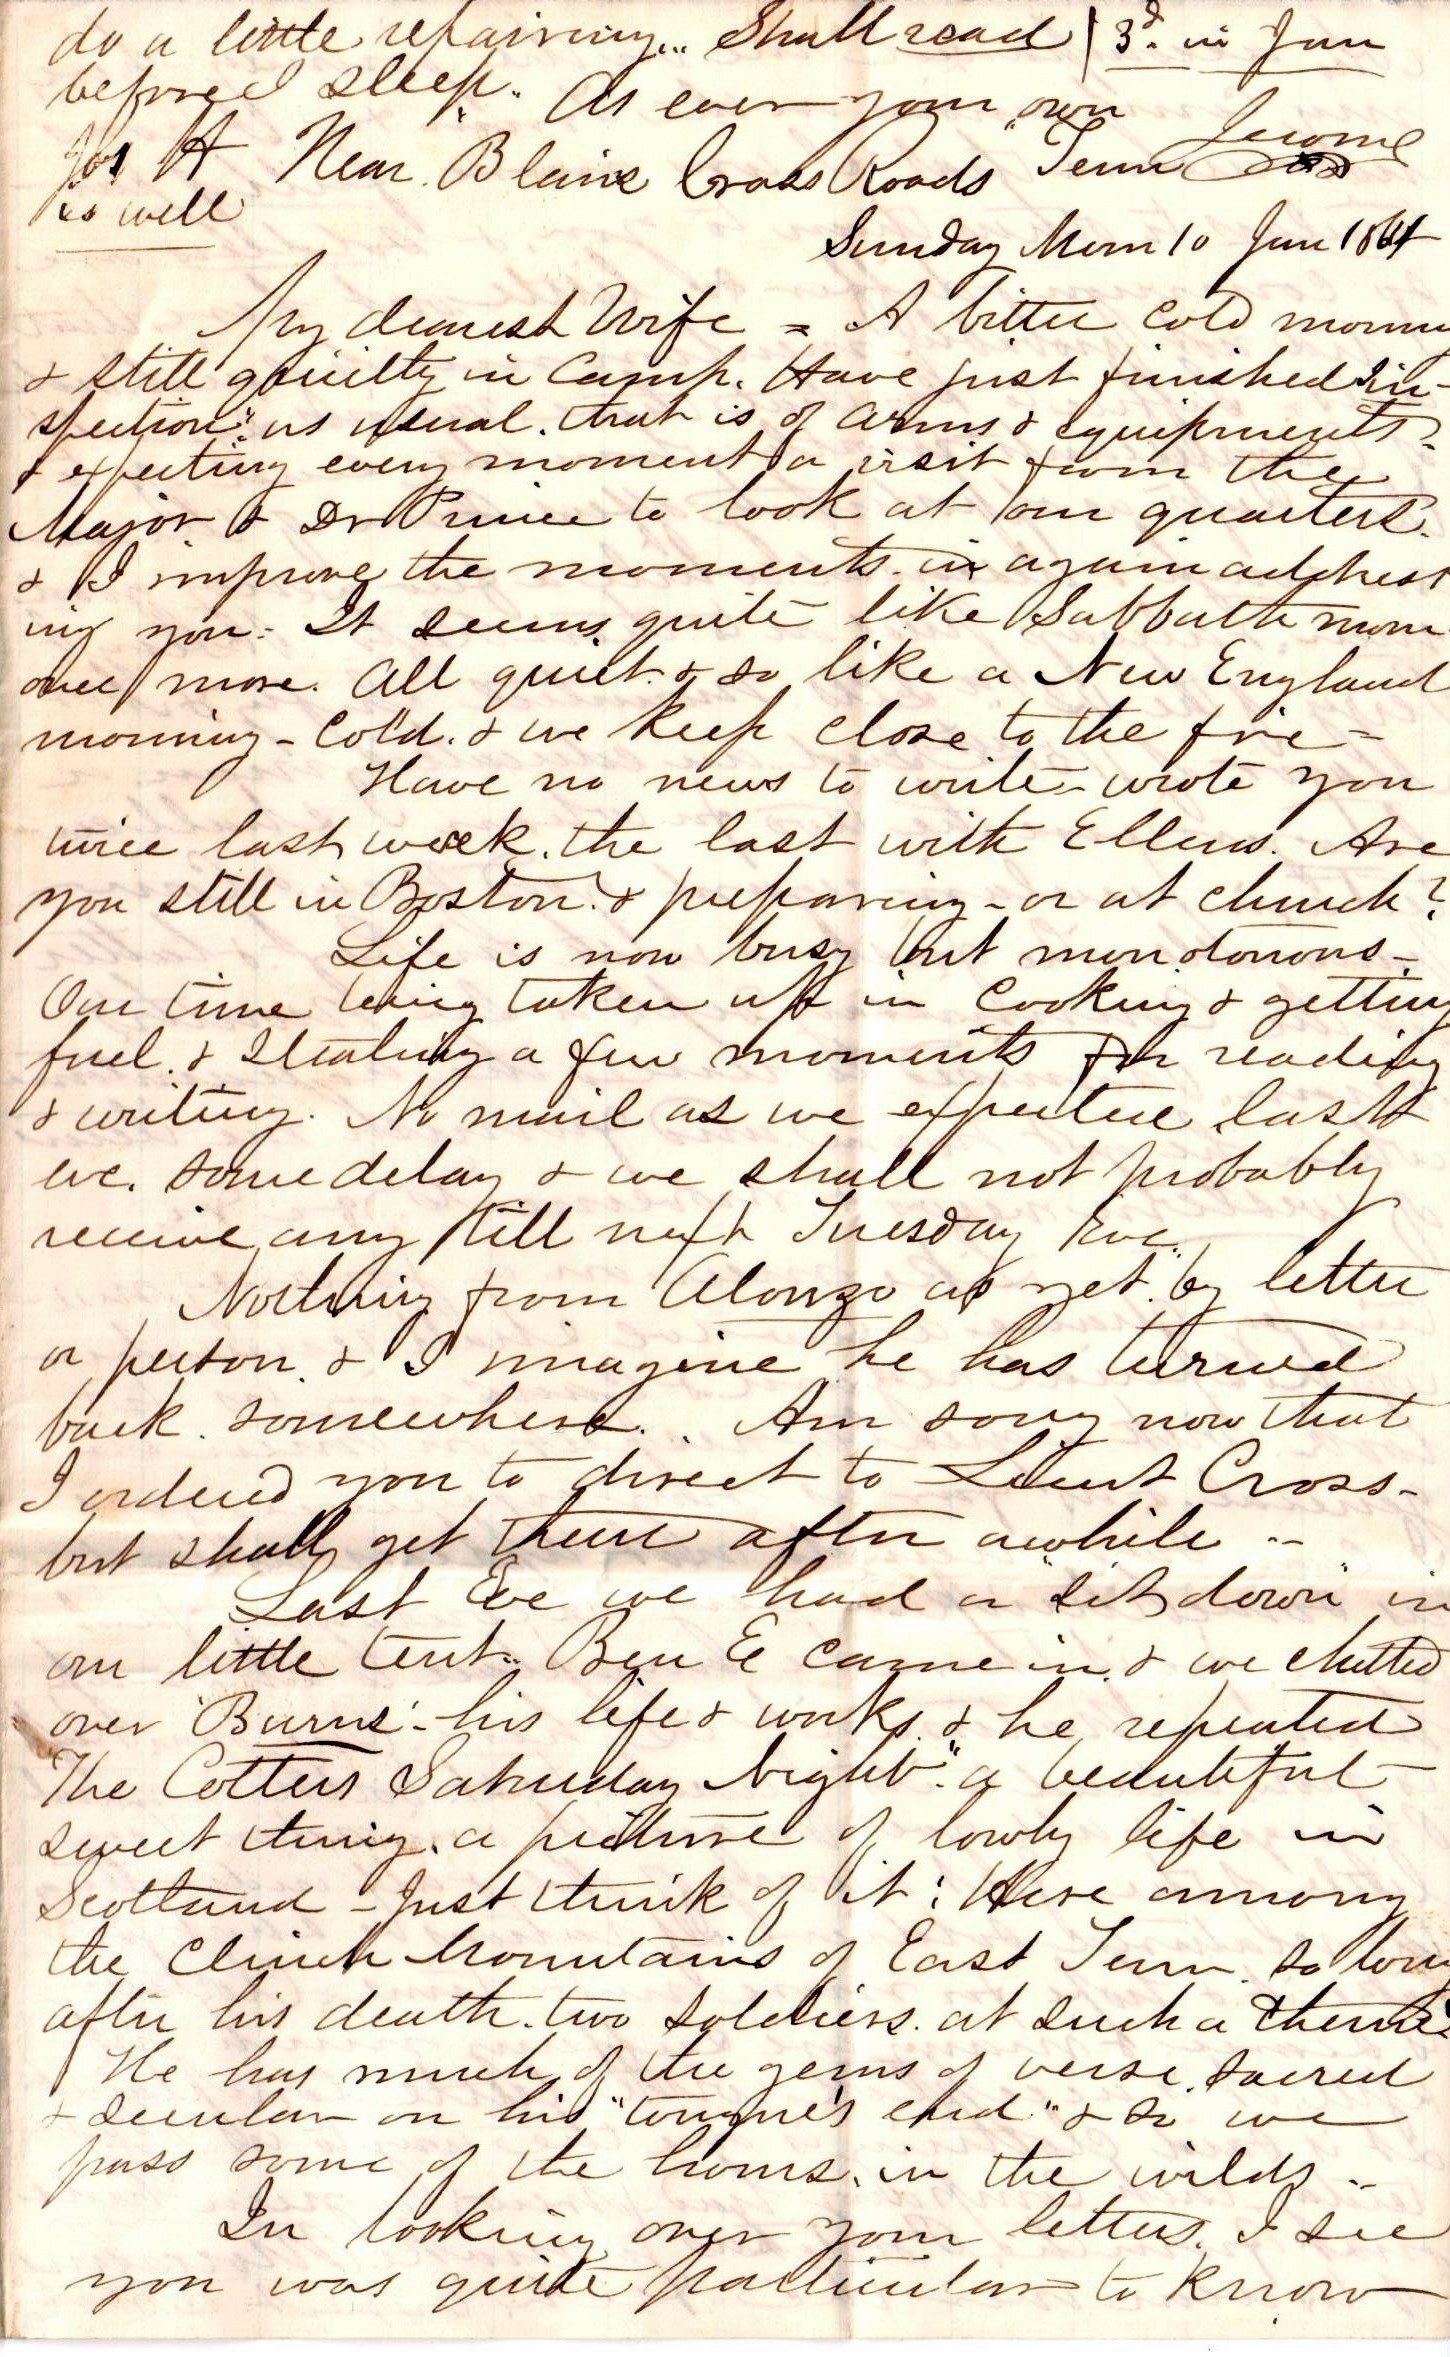 do a little repairing... Shall read | 3d. in Jan
before I sleep. As ever your own
Jerome
Jos H Near Blains Cross Roads Tenn
is well
Sunday Morn 10 Jan 1864
My dearest Wife = A bitter cold morning
& still quietly in Camp. Have just finished "In-
spection" as usual. that is of arms & equipments.
& expecting every moment a visit from the
Major & Dr Prince to look at our quarters.
& I improve the moments in again address
ing you. It seems quite like Sabbath morn
once more. All quiet & so like a New England
morning - cold. & we keep close to the fire -
Have no news to write - wrote you
twice last week. the last with Ellens. Are
you still in Boston. & preparing - or at church?
Life is now busy but monotonous -
Our time being taken up in cooking & getting
fuel. & stealing a few moments for reading
& writing. No mail as we expected last
eve. some delay & we shall not probably
receive any till next Tuesday Eve.
Nothing from Alonzo as yet. by letter
or person. & I imagine he has turned
back somewhere. Am sorry now that
I ordered you to direct to Lieut Cross -
but shall get them after awhile --
Last Eve we had a "sit down" in
our little tent. Ben E came in. & we chatted
over 'Burns' - his life & works. & he repeated
The Cotters Saturday Night". a beautiful
sweet thing. a picture of lowly life in
Scotland - Just think of it! Here among
the Clinch Mountains of East Tenn. so long
after his death. two soldiers. at such a theme.
He has much of the gems of verse. sacred
& secular on his "tongue's end" & so we
pass some of the hours. in the wilds --
In looking over your letters. I see
you was quite particular to know